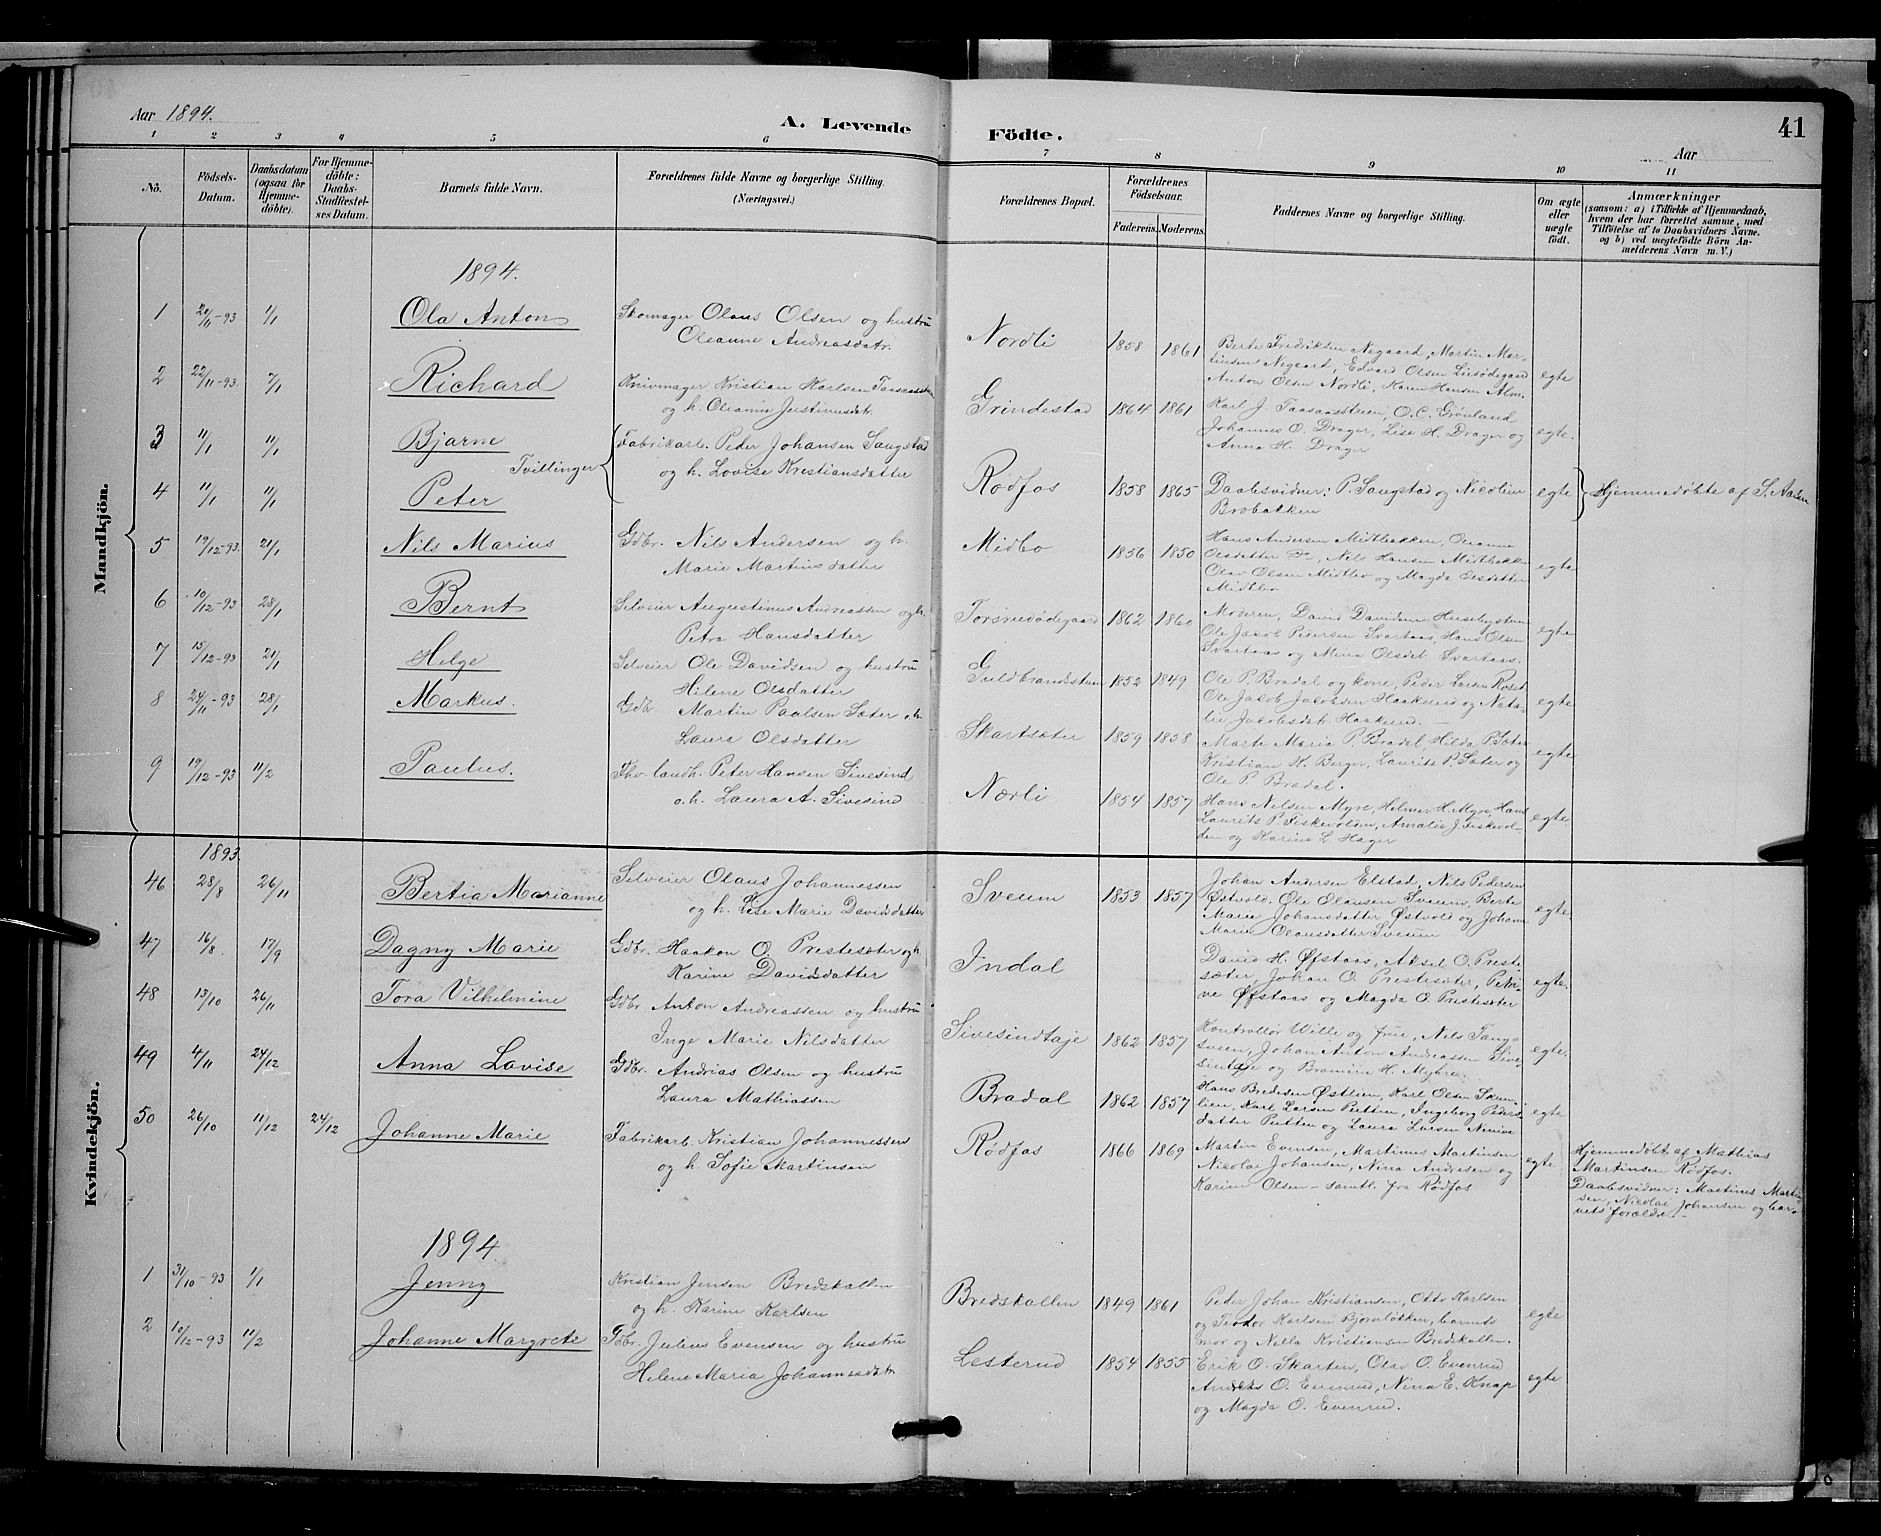 Aar 1894.
A. Levende Födte.
41
Aar
1 2 3 4 5 6 7 8 9 10 11
No.
Födsels-Datum.
Daabsdatum (ogsaa for Hjemme-döbte).
For Hjemme-döbte: Daabs-Stadfæstel-ses Datum.
Barnets fulde Navn.
Forældrenes fulde Navne og borgerlige Stilling.
(Næringsvei.)
Forældrenes Bopæl.
Forældrenes Födselsaar.
Faderens. Moderens.
Faddernes Navne og borgerlige Stilling.
Om ægte eller uægte födt.
Anmærkninger
(saasom: a) i Tilfælde af Hjemmedaab,
hvem der har forrettet samme, med
Tilföielse af to Daabsvidners Navne.
og b) ved uægtefödte Börn An-
melderens Navn m. V.)
Mandkjön.
1894.
1 20/11-93 1/1 Ola Anton
Skomager Olaus Olsen og hustru
Oleanne Andreasdatr.
Nordli 1858 1861
Berte Fredriksen Negaard, Martin Mar-
tinsen Negaard, Edvard Olsen
Anton Olsen Nordli, Karen Hansen Alm.
egte
2 22/11-93. 7/1 Richard
Knivmager Kristian Karlsen
og h. Oleanne Justinusdt.
Grindestad 1864 1861
Karl J. Taasaasteen, O.C. Grønland
Johannes O. Drager, Lise H. Drager og
Anna H. Drager
egte.
3 11/1 11/1 Bjarne
Tvillinger
Fabrikarb. Peder Johansen Sangstad
og h. Lovise Kristiansdatter
4 11/1 11/1 Peter
Rødfos 1858 1865
Daabsvidner: P. Sangstad og Nicoline
Brobakken
egte
Hjemmedøbte af S. Aasen
5 19/12-93. 21/1 Nils Marius
Gdbr. Nils Andersen og h.
Marie Martinsdatter
Midbo 1856 1850
Hans Andersen Midtbakken, Oleanne
Olsdatter do, Nils Hansen Midtbakken
Olav Olsen Midtbo og Magda Olsdatter
Midtbo
egte
6 10/12-93 28/1 Bernt
Selveier Augustinus Andreassen og h.
Petra Hansdatter
1862 1860
Moderen, David Davidsen
Ole Jacob Pedersen Svartaas, Hans Olsen
Svartaas og Mina Olsdt. Svartaas.
egte
7 15/12-93 21/1 Helge
Selveier Ole Davidsen og hustru
Helene Olsdatter
Guldbrandstuen 1852 1849
Ole P. Bradal og kone, Peder Larsen Roset
Ole Jacob Jacobsen Haakerud og Nata-
lie Jacobsdt. Haakerud.
egte
8 24/11-93 28/1 Markus.
Gdbr. Martin Paulsen Sæter o.h.
Laura Olsdatter
Skartsæter 1859 1858
Marte Maria P. Bradal, Hilda P. Sæter
Kristian H. Berger, Laurits P. Sæter og
Ole P. Bradal.
egte
9 19/12-93 11/2 Paulus.
Fhv. landh. Peter Hansen Sivesind
o.h. Laura A. Sivesind
Nærli 1854 1857
Hans Nilsen Myre, Helmer H. Myre, Hans
Laurits P. Fiskevolden, Amalie J. Fiskevol-
den og Karine L. Hager
egte.
Kvindekjön.
1893.
46 28/8 26/11 Bertia Marianne
Selveier Olaus Johannessen
og h. Lise Marie Davidsdatter
Sveum 1853 1857
Johan Andersen Elstad, Nils Pedersen
Østvold, Ole Olausen Sveum, Berte
Marie Johansdatter Østvold og Johan
Marie Olausdatter Sveum
egte.
47 16/8. 17/9 Dagny Marie
Gdbr. Haakon O. Prestesæter og h.
Karine Davidsdatter
Indal
David H. Øfstaas, Aksel O. Preste-
sæter, Johan O. Prestesæter, Petri-
ne Øfstaas og Magda O. Prestesæter
egte.
48 13/10 26/11 Tora Vilhelmine
Gdbr. Anton Andreassen og hustru
Inge Marie Nilsdatter
Sivesindtaje 1862 1857
Kontrollør Wille og frue, Nils Tang-
sveen, Johan Anton Andreassen Sive-
sintaje og Bramine H. Myhre.
egte.
49 4/11 24/12 Anna Lovise
Gdbr. Andrias Olsen og hustru
Laura Mathiassen
Bradal 1862 1857
Hans Bredesen Østlien, Karl Olsen Skun-
lien, Karl Larsen Putten, Ingeborg Peders-
datter Putten og Laura Larsen
egte
50 26/10 11/12 24/12 Johanne Marie
Fabrikarb. Kristian Johannessen
og h. Sofie Martinsen
Rødfos 1866 1869
Martin Evensen, Martinus Martinsen
Nicolai Johansen, Nina Andresen og
Karine Olsen - samtl. fra Rødfos
egte
Hjemmedøbt af Mathias
Martinsen Rødfos.
Daabsvidner: Martinus Marti-
sen, Nicolai Johansen og bar-
nets forældre.
1894.
1 31/10-93 1/1 Jenny
Kristian Jensen Bredskallen
og h. Karine Karlsen
Bredskallen 1849 1861
Peder Johan Kristiansen, Otto Karlsen
og Teodor Karlsen Bjørnløkken, barnets
mor og Nella Kristiansen Bredskallen.
egte
2 10/12-93 11/2 Johanne Margrete
Gdbr. Julius Evensen og hustru
Helene Maria Johannesdatr.
Lesterud 1854 1855
Erik O. Skarten, Olav O. Evenrud
Anders O. Evenrud, Nina E. Knap
og Magda O. Evenrud.
egte